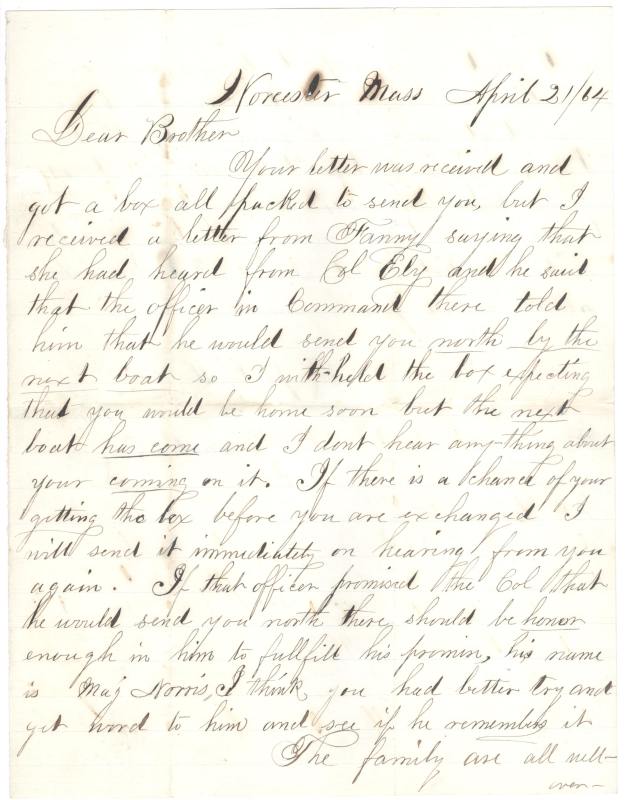 Worcester Mass April 21/64
Dear Brother
Your letter was received and
got a box all packed to send you, but I
received a letter from Fanny saying that
she had heard from Col Ely and he said
that the officer in Command there told
him that he would send you north by the
next boat so I with-held the box expecting
that you would be home soon but the next
boat has come and I dont hear any-thing about
your coming on it. If there is a chance of your
getting the box before you are exchanged I
will send it immediately on hearing from you
again. If that officer promised the Col that
he would send you north there should be honor
enough in him to fullfill his promise, his name
is Maj Norris, I think you had better try and
get word to him and see if he remembers it
The family are all well
over-